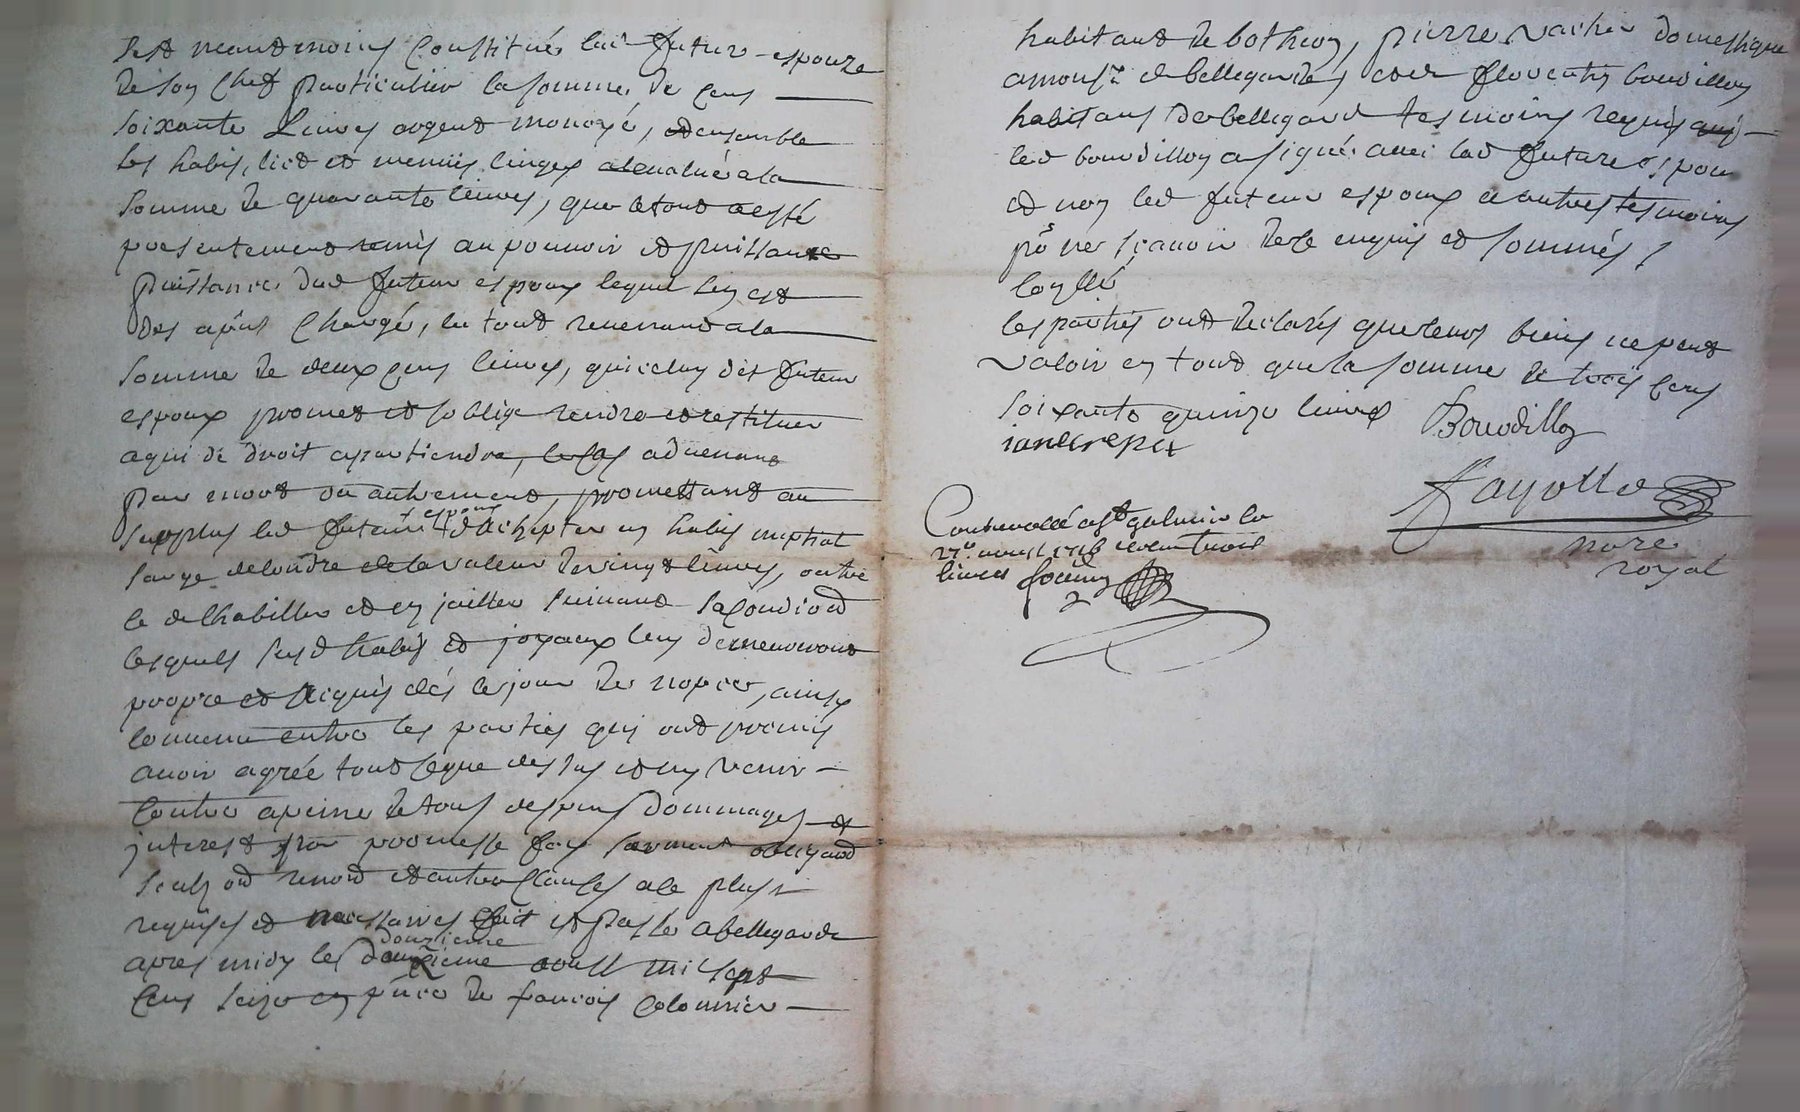 sest neantmoins Constitué lad future espouze
de son Chef particulier la somme de cent
soixante Livres argent monoyé, et ensemble
ses habis, lict et menus linges a la
somme de quarante livres, que le tout a esté
presentement remis au pouvoir et puissance
puissance dud futeur espoux lequel sen est
des apñt Chargé, le tout revenant a la
somme de deux cens livres, qu'iceluy dit futeur
espoux promet et soblige rendre et restituer
a qui de droit apartiendra, le cas advenant
par mort ou autrement, promettant au
surplus led futeur espoux d'achepter en habis nuptial
sarge de londre de la valeur de vingt livres, outre
le de lhabiller et en jaieller suivant sa condiond
lesquels susd habis et joyaux luy demeureront
propre et acquis dés le jour des nopces, ainsy
convenu entre les parties qui ont promis
avoir agrée tout ce que dessus et ny venir
contre a peine de tous despens dommages et
interest par promesse foy serment obligaond
renond et autres clauses a le plus
requises et necessaires fait et passé a bellegarde
apres midy le douzieme aoust mil sept
cens seize en pñce de francois colomier
habitant de botheon, pierre vacher domestique
a monsr de bellegarde et florentin bourdillon
habitans de bellegarde tesmoins requis
led bourdillon a signé avec lad future espou
et non led futeur espoux et autres tesmoins
pour ne scavoir de ce enquis et sommés /
Conllé
les parties ont declarés que leurs biens ne peut
valoir en tout que la somme de trois cens
soixante quinze livres Bourdillon
iane crepet
Fayolle
nore
royal
Controollé a st galmier le
aoust 1716 receu trois
livres